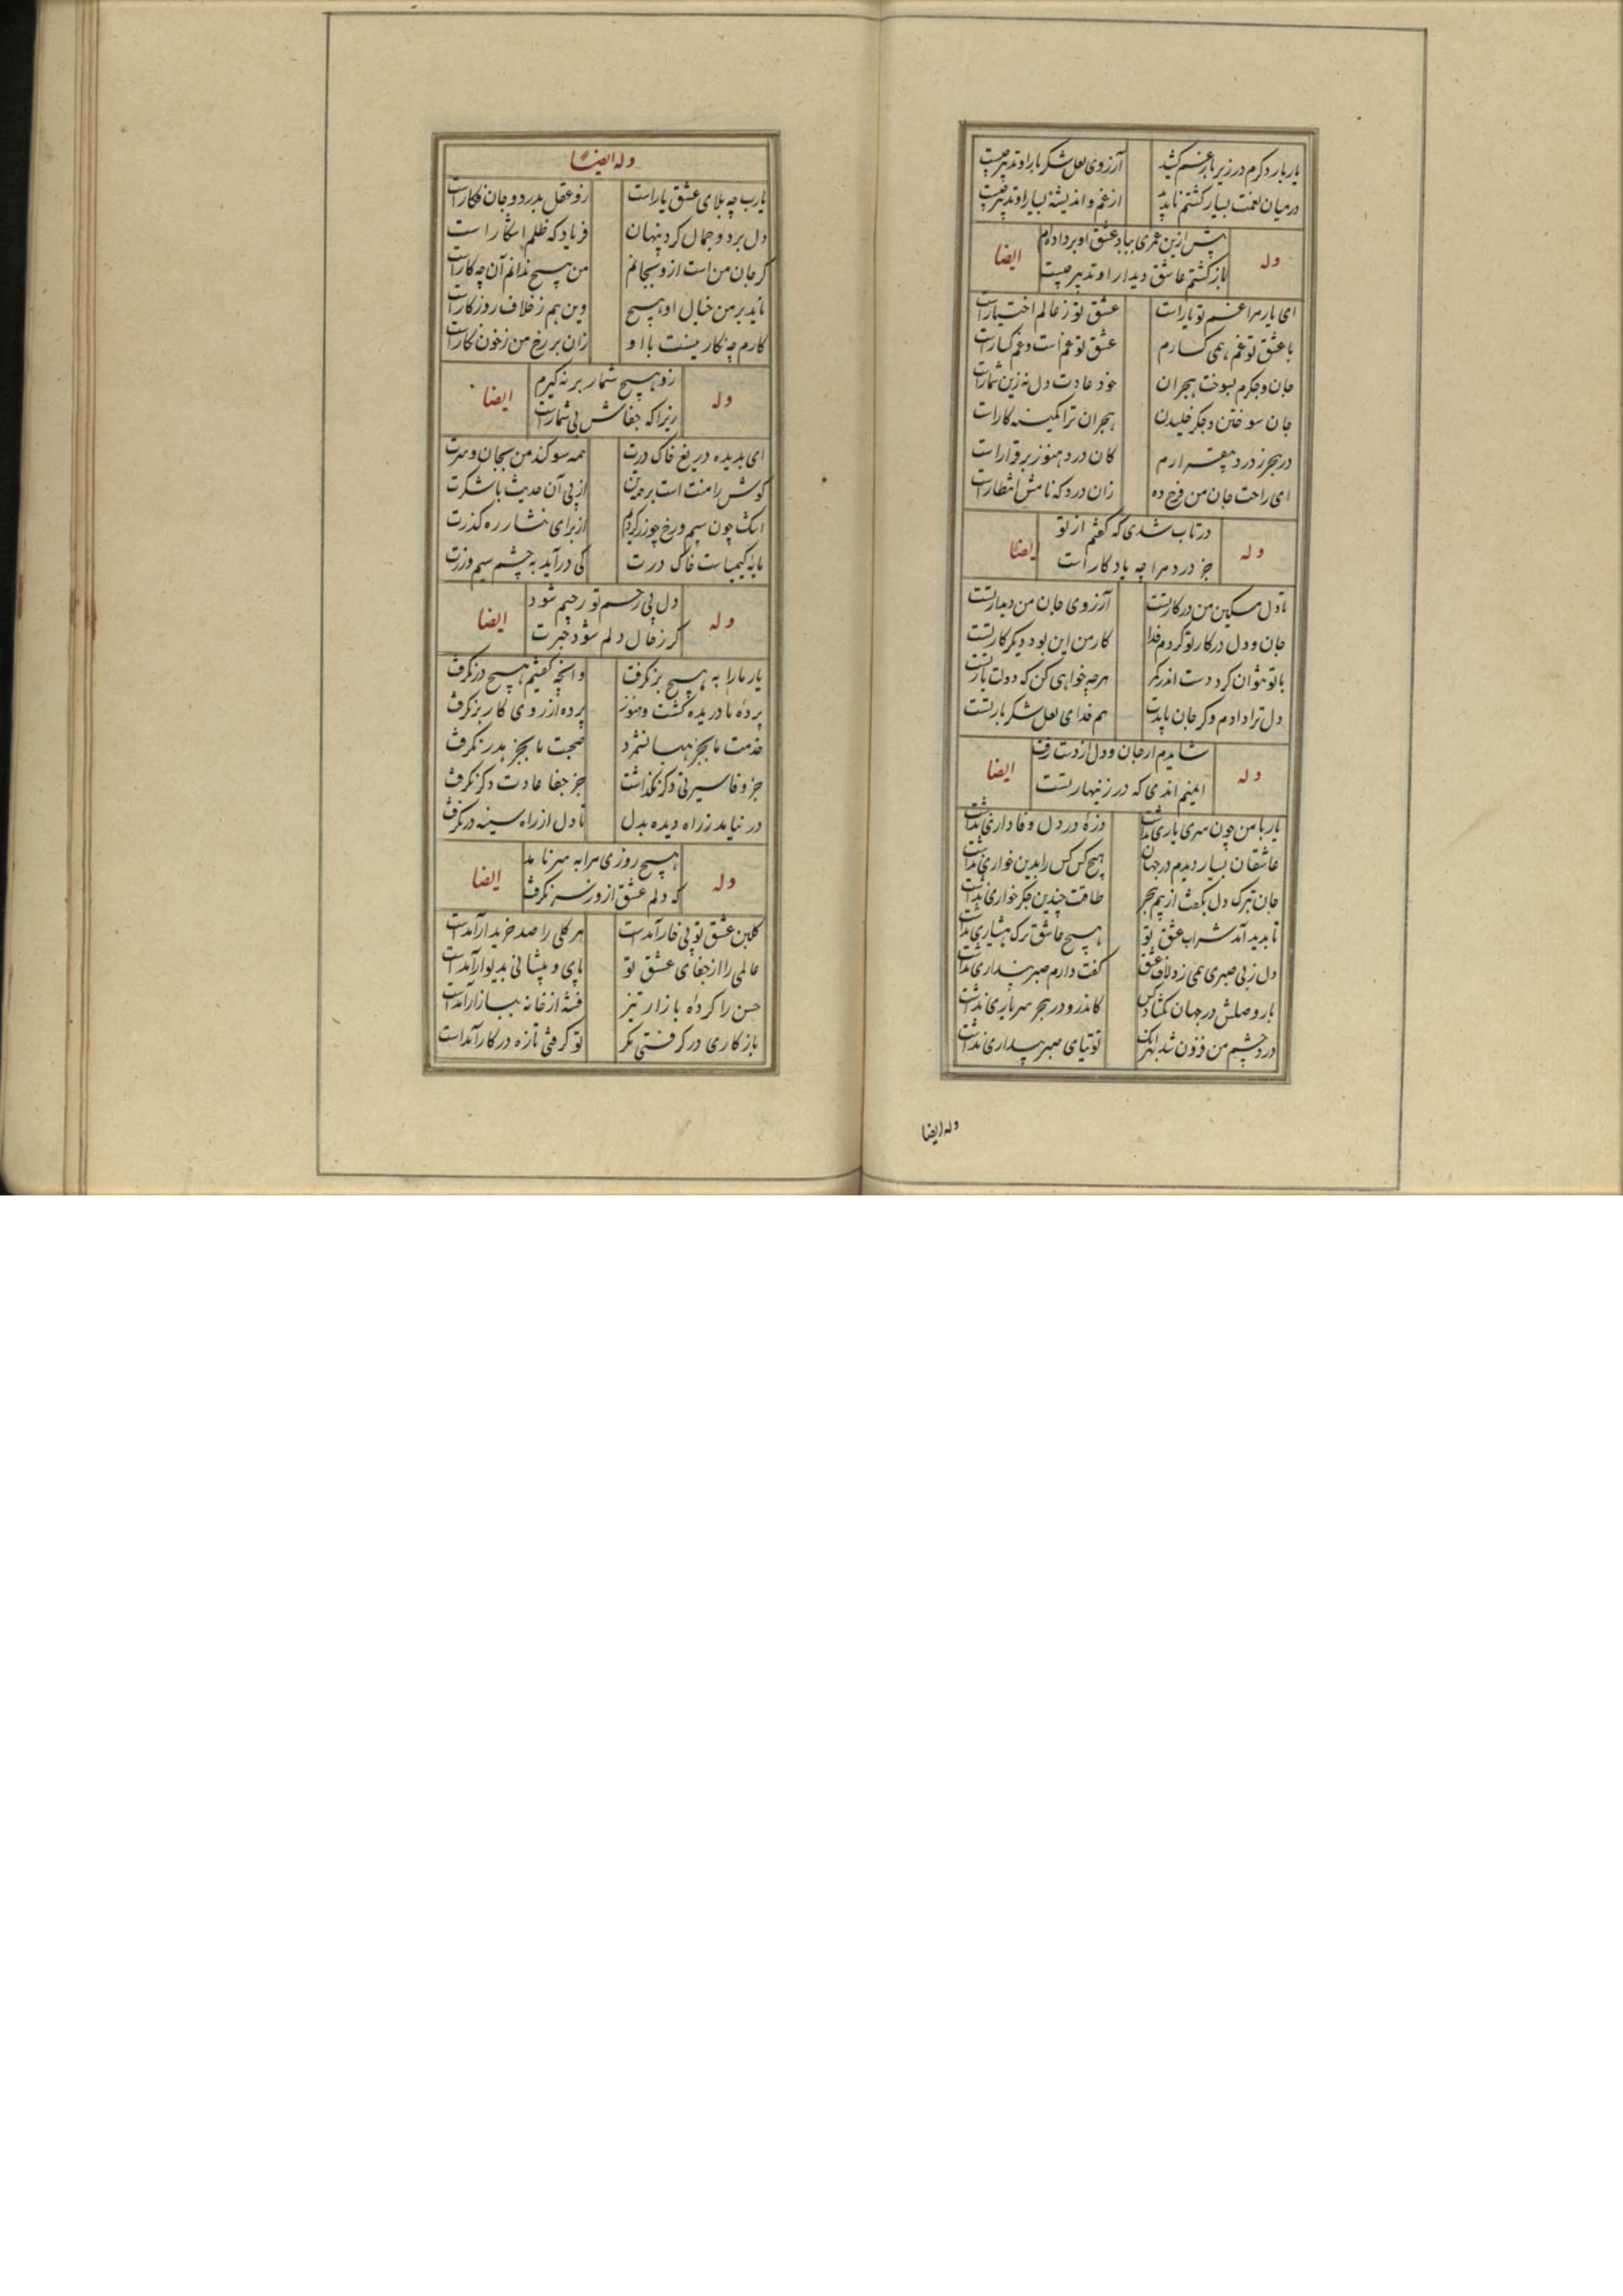 یار بار دکرم در زیر بار غم کشید آرزوی لعل شکر بار او تدبیر چیست
در میان نعمت بسیار کشتم ناپدید از غم و اندیشهٔ بسیار او تدبیر چیست
پیش ازین عمری بباد عشق او بر داده‌ام
وله ایضا
باز کشتم عاشق دیدار او تدبیر چیست
ای یار مرا غم تو یارست عشق تو ز عالم اختیارست
با عشق تو غم همی کسارم عشق تو غمست و غم کسارست
جان و جکرم بسوخت هجران خود عادت دل نه زین شمارست
جان سوختن و جکر خلیدن هجران ترا کمینه کارست
در هجر ز درد بیقرارم کان درد هنوز برقرارست
ای راحت جان من فرج ده زان درد که نامش انتظارست
در تاب شدی که کفتم از تو
وله ایضا
جز درد مرا چه یادکار است
تا دل مسکین من در کار تست آرزوی جان من دیدار تست
جان و دل در کار تو کردم فدا کار من این بود دیکر کار تست
با تو نتوان کرد دست اندر کمر هرچه خواهی کن که دولت یار تست
دل ترا دادم وکر جان بایدت هم فدای لعل شکر بار تست
شایدم ار جان و دل از دست رفت
وله ایضا
ایمنم اندی که در زنهار تست
یار با من چون سر یاری نداشت ذرهٔ در دل وفاداری نداشت
عاشقان بسیار دیدم در جهان هیچ کس کس را بدین خواری نداشت
جان بترک دل بکفت از بیم هجر طاقت چندین جکرخواری نداشت
تا پدید آمد شراب عشق تو هیچ عاشق برک هشیاری نداشت
دل ز بی صبری همی زد لاف عشق کفت دارم صبر پنداری نداشت
بار وصلش در جهان نکشاد کس کاندرو در هجر سرباری نداشت
درد چشم من فزون شد بهر آنک توتیای صبر پنداری نداشت
وله ایضا
وله ایضا
یارب چه بلای عشق یارست زو عقل بدرد و جان فکارست
دل برد و جمال کرد پنهان فریاد که ظلم آشکار است
کر جان منست ازو بجانم من هیچ ندانم آن چه کارست
ناید بر من خیال او هیچ وین هم ز خلاف روزکارست
کارم چه نکار نیست با او زان بر رخ من ز خون نکارست
زو هیچ شمار بر نه کیرم
وله ایضا
زیرا که جفاش بی شمارست
ای بدیده دریغ خاک درت همه سوکند من بجان و سرت
کوش را منت است بر همه تن از پی آن حدیث با شکرت
اشک چون سیم و رخ چو زر کردم از برای نثار ره کذرت
مایهٔ کیمیاست خاک درت کی درآید به چشم سیم و زرت
دل بی رحم تو رحیم شود
وله ایضا
کر ز حال دلم شود خبرت
یار ما را به هیچ برنکرفت وانچه کفتیم هیچ درنکرفت
پردهٔ ما دریده کشت و هنوز پرده از روی کار برنکرفت
خدمت ما بجز هبا نشمرد صحبت ما بجز هدر نکرفت
جز وفا سیرتی دکر نکذاشت جز جفا عادت دکر نکرفت
در نیامد ز راه دیده بدل تا دل از راه سینه درنکرفت
هیچ روزی مرا به سر نامد
وله ایضا
که دلم عشق او ز سر نکرفت
کلبن عشق تو بی خار آمدست هر کلی را صد خریدار آمدست
عالمی را از جفای عشق تو پای و پیشانی بدیوار آمدست
حسن را کردهٔ بازار تیز فتنه از خانه ببازار آمدست
باز کاری درکرفتی نکر تو کرفتی تازه در کار آمداست